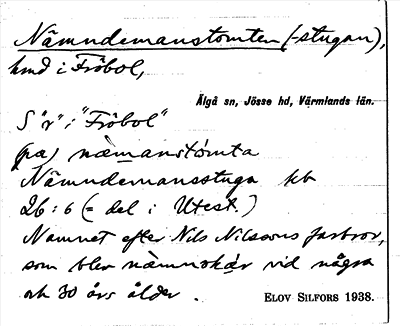 Nämndemanstomten (-stugan),
hmd i Fröbol,
Älgå sn, Jösse hd, Värmlands län.
S "r" i "Fröbol"
(pa) näमanstómta
Nämndemansstuga kb
26:6 (= del i Utest.)
Namnet efter Nils Nilssons farbror,
som blev nämnskär vid några
och 30 års ålder.
ELOV SILFORS 1938.